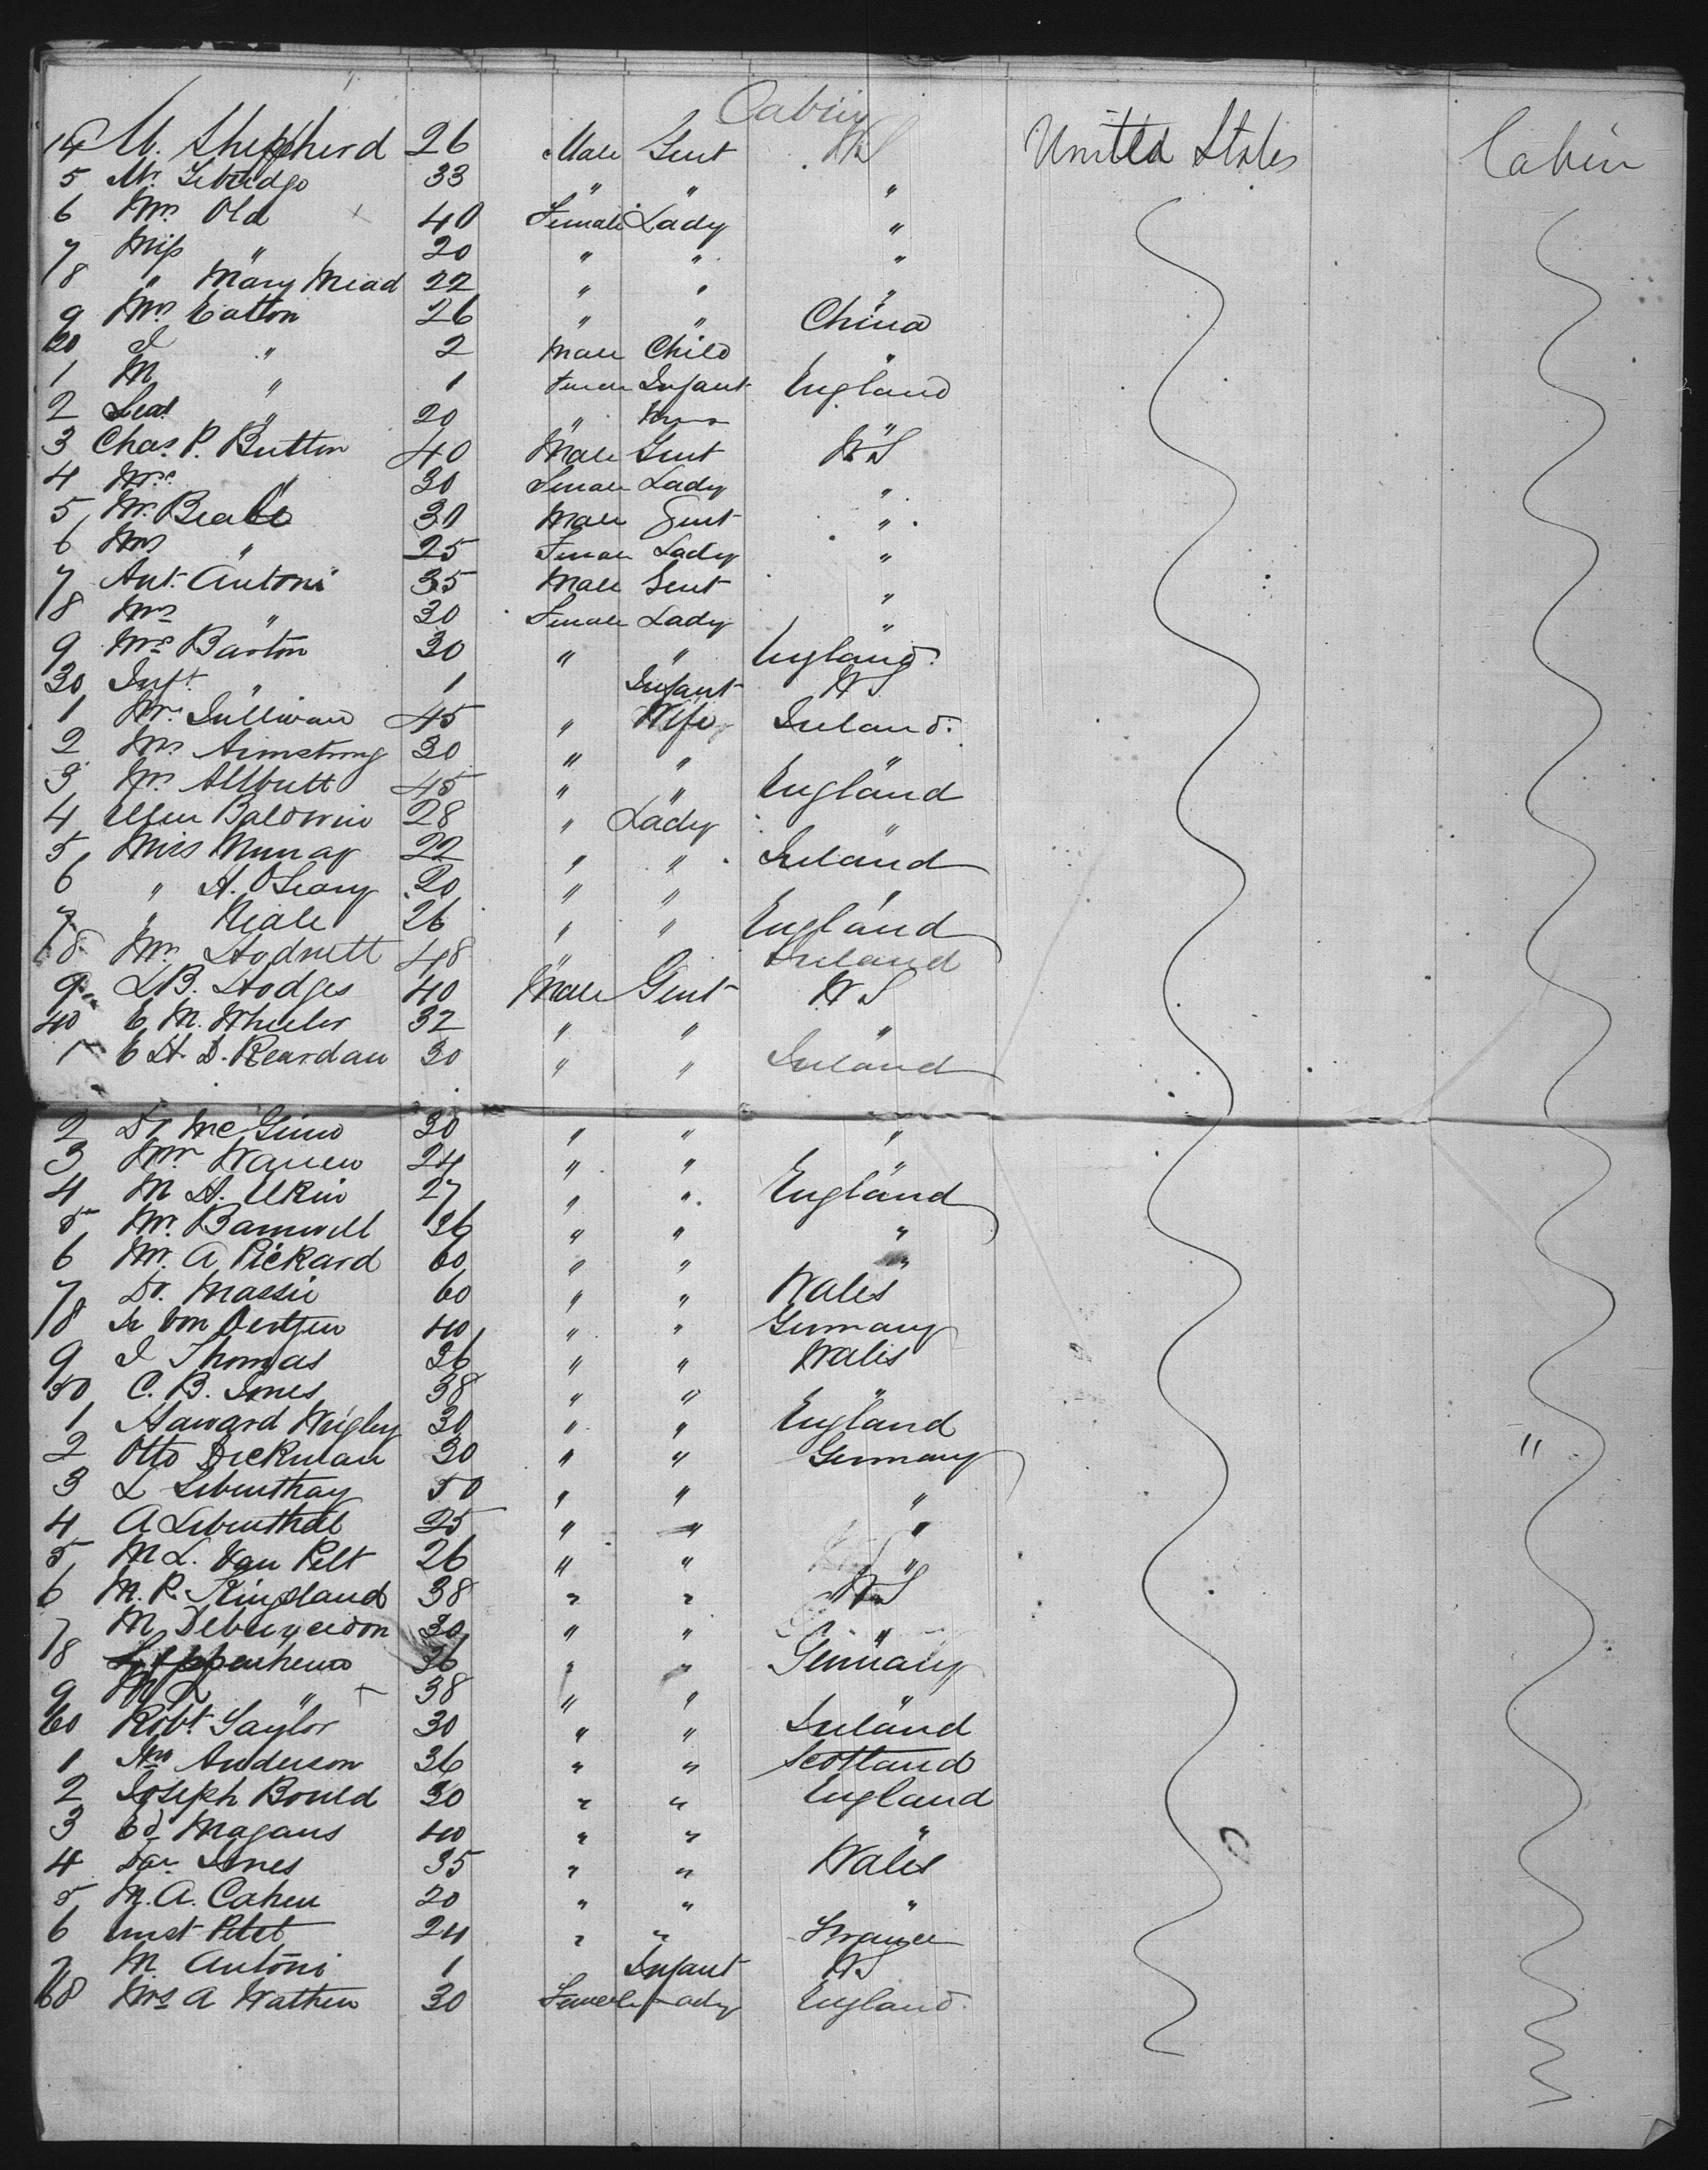 Cabin
14 M. Shepherd 26 Male Gent US United States Cabin
5 Mr. 33 " " "
6 Mrs Old 40 Female Lady "
7 Miss " 20 " " "
18 " Mary Mead 22 " " "
9 Mrs Eatton 26 " " China
20 J " 2 Male Child "
1 M " 1 Female Infant England
2 " 20 " "
3 Chas. P. Button 40 Male Gent US
4 Mrs " 30 Female Lady "
5 Mr. Beale 30 Male Gent "
6 Mrs " 25 Female Lady "
7 Ant. Antoni 35 Male Gent "
18 Mrs " 30 Female Lady "
9 Mrs Barton 30 " " England
30 Inft. " 1 Infant US
1 Mrs Sullivan 45 " Wife Ireland
2 Mrs Armstrong 30 " " "
3 Mrs Allbutt 45 " " England
4 Ellen Baldwin 28 " Lady "
5 Miss Murray 22 " " Ireland
6 " A. O'Leary 20 " " "
7 " Neale 26 " " England
18 Mrs Hodnett 48 " Ireland
9 L.B. Hodges 40 Male Gent US
40 E. M. Wheeler 32 " " "
1 E H. D. Reardan 30 " " Ireland
2 Dr McGinn 30 " " "
3 Mr Warren 24 " " "
4 M H. Elkin 27 " " England
5 Mr. Barnwell 36 " " "
6 Mr. A Pickard 60 " " "
7 Dr. Massie 60 " " Wales
18 Von Oertzen 40 " " Germany
9 J Thomas 26 " " Wales
50 C. B. Jones 38 " " "
1 Haward Wrigley 30 " " England
2 Otto Dickman 30 " " Germany "
3 L Libenthay 50 " " "
4 A Libenthal 25 " " "
5 M L. Van Pelt 26 " " "
6 M. R. Kingsland 38 " " US
7 M 30 " " "
18 36 " " Germany
9 " 38 " " "
60 Robt Taylor 30 " " Ireland
1 Wm Anderson 36 " " Scotland
2 Joseph Bould 30 " " England
3 Ed Magans 40 " " "
4 Dav. Jones 35 " " Wales
5 M. A. Cahen 20 " " "
6 Petit 24 " " France
7 M Antoni 1 Infant US
68 Mrs A Wathen 30 Female Lady England